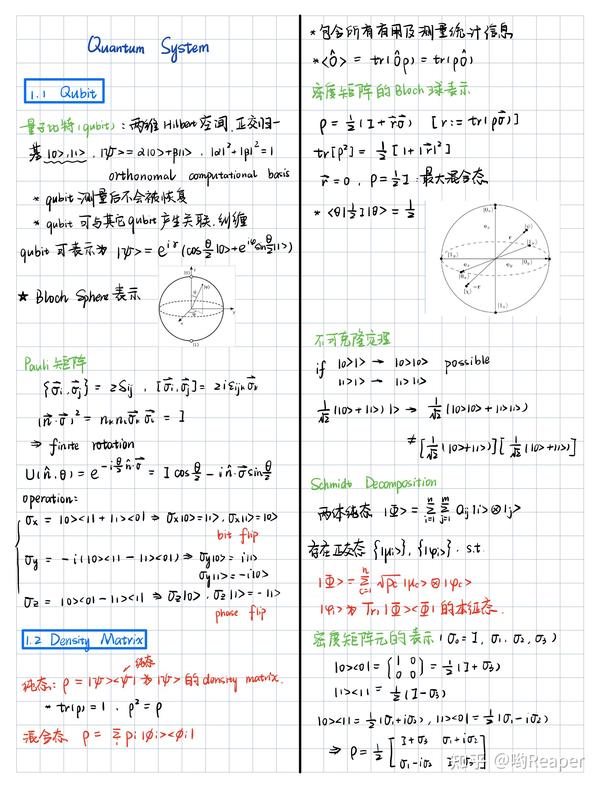 Quantum System
1.1 Qubit
量子比特(qubit): 两维Hilbert空间, 正交归一
基 |0>,|1>, |ψ>=α|0>+β|1>, |α|²+|β|²=1
orthonomal computational basis
* qubit 测量后不会被恢复
* qubit 可与其它qubit 产生关联, 纠缠
qubit 可表示为 |ψ>= e^{iγ}(cos θ/2 |0>+e^{iφ}sin θ/2 |1>)
★ Bloch Sphere 表示
Pauli 矩阵
{σ⃗i,σ⃗j} = 2δij , [σ⃗i,σ⃗j]= 2iεijkσ⃗k
(n⃗·σ⃗)² = nκnκσ⃗κσ⃗κ = I
⇒ finite rotation
U(n̂,θ) = e^{-i θ/2 n̂·σ⃗} = I cos θ/2 - i n̂·σ⃗ sin θ/2
operation:
σx = |0><1| + |1><0| ⇒ σx|0>=|1>, σx|1>=|0>
bit flip
σy = -i(|0><1| - |1><0|) ⇒ σy|0>= i|1>
σy|1>=-i|0>
σz = |0><0| - |1><1| ⇒ σz|0>, σz|1>= -|1>
phase flip
1.2 Density Matrix
纯态
纯态: ρ = |ψ><ψ| 为 |ψ> 的 density matrix.
* tr(ρ) = 1 , ρ² = ρ
混合态 ρ = Σi pi |φi><φi|
* 包含所有有用及测量统计信息
* <Ô> = tr(Ôρ) = tr(ρÔ)
密度矩阵的Bloch球表示
ρ = 1/2 (I + r⃗σ⃗) [r := tr(ρσ⃗)]
tr[ρ²] = 1/2 [1+|r⃗|²]
r⃗ = 0 , ρ = 1/2 I : 最大混合态
* <θ|1/2 I|θ> = 1/2
不可克隆定理
if |0>|> → |0>|0> possible
|1>|> → |1>|1>
1/√2 (|0> + |1>) |> → 1/√2 (|0>|0> + |1>|1>)
≠ [1/√2 (|0>+|1>)] [1/√2 (|0>+|1>)]
Schmidt Decomposition
两体纯态 |Φ> = Σ_{i=1}^{n} Σ_{j=1}^{m} aij |i>⊗|j>
存在正交态 {|μi>}, {|φi>}, s.t.
|Φ> = Σ_{c=1}^{n} √pc |μc>⊗|φc>
|φi> 为 Tr1 |Φ><Φ| 的本征态.
密度矩阵元的表示 (σ0 = I, σ1, σ2, σ3)
|0><0| = (1 0 0 0) = 1/2 (I + σ3)
|1><1| = 1/2 (I - σ3)
|0><1| = 1/2 (σ1+iσ2), |1><0| = 1/2 (σ1 - iσ2)
⇒ ρ = 1/2 [I+σ3 σ1+iσ2
σ1-iσ2
知乎 @哟Reaper